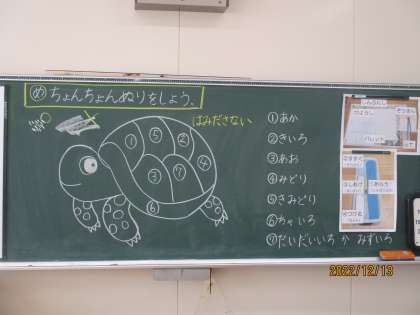 め ちょんちょんぬりをしよう。
はみださない
① ② ③ ④ ⑤ ⑥ ⑦
①あか
②きいろ
③あお
④みどり
⑤きみどり
⑥ちゃいろ
⑦だいだいいろ か みずいろ
がようし
パレット
2022/12/13